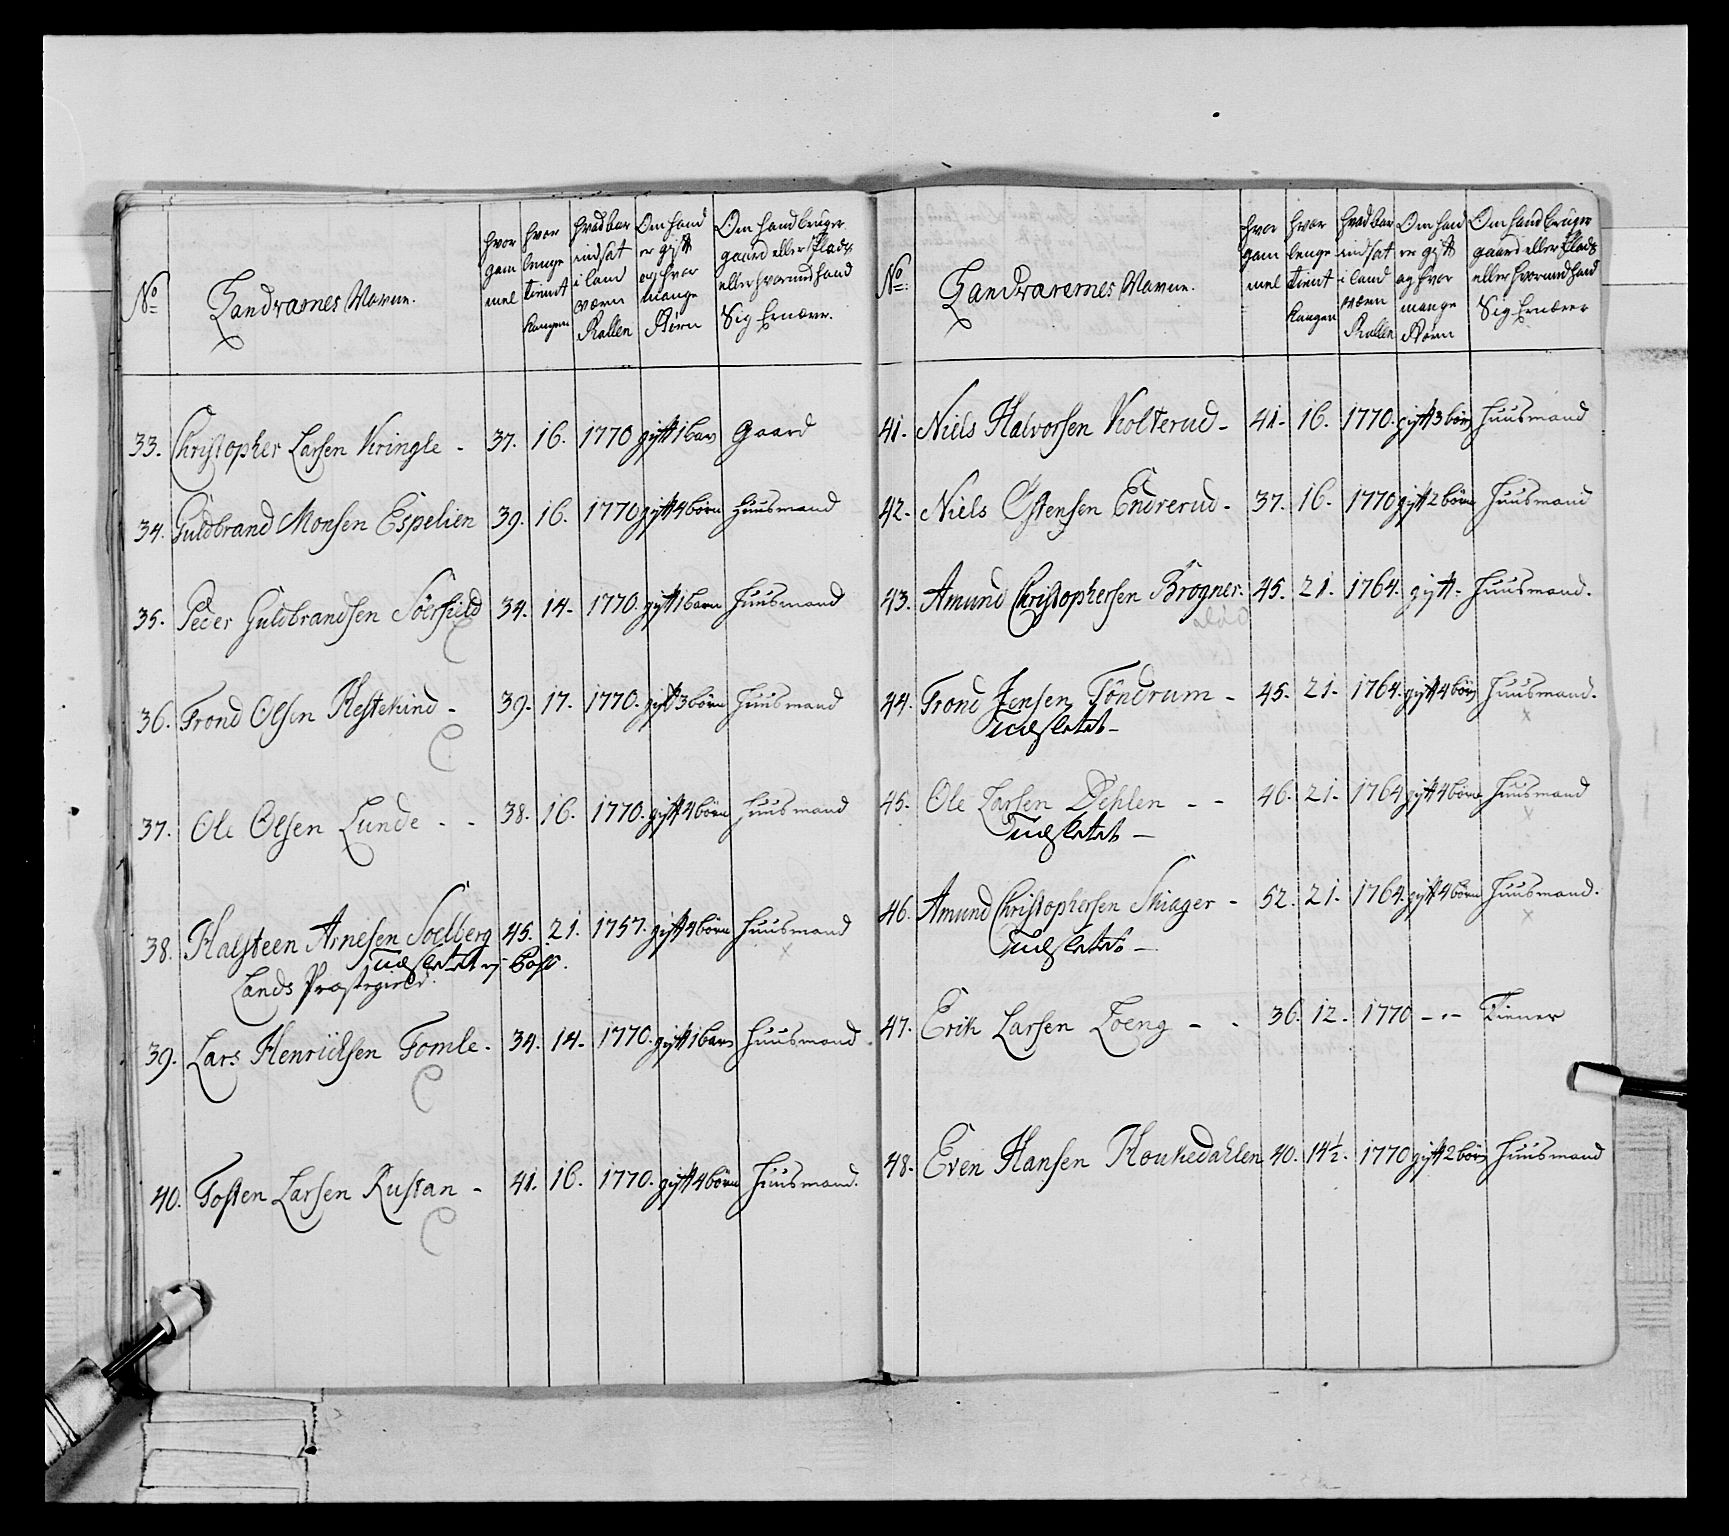 No
Landværnes Navne.
hvor gam mel
hvor lenge tient Kongen
hvad bar indsat i land værn Rullen
Om hand er gift og hvor mange Börn
Om hand bruger gaard eller Plads eller hvormed hand Sig Ernærer.
33. Christopher Larsen Kringle - 37. 16. 1770 gift 1 barn Gaard
34. Guldbrand Monsen Espelien 39. 16. 1770 gift 4 börn Huusmand
35. Peder Guldbrandsen Söerfield 34. 14. 1770. gift 1 barn Huusmand
36. Trond Olsen Restekind - 39. 17. 1770. gift 3 börn Huusmand
37. Ole Olsen Lunde - - 38. 16. 1770. gift 4 börn Huusmand
38. Halsteen Arnesen Soelberg 45. 21. 1757. gift 4 börn Huusmand
x
Udsletet
Lands Præstegield.
39. Lars Henrichsen Tomle. 34. 14. 1770. gift 1 barn Huusmand.
40. Tosten Larsen Rustan - 41. 16. 1770. gift 4 börn Huusmand.
No
Landværernes Navne.
hvor gam mel
hvor lenge tient Kongen
hvad bar indsat i land værn Rullen
Om hand er gift og hvor mange Börn
Om hand bruger gaard eller Plads eller hvormed hand Sig Ernærer
41. Niels Halvorsen Kolterud - 41. 16. 1770. gift 3 börn Huusmand
42. Niels Östensen Endrerud - 37. 16. 1770 gift 2 börn Huusmand
43. Amund Christophersen Brogner. 45. 21. 1764. gift. Huusmand.
44. Trond Jensen Töndrum - 45. 21. 1764. gift 4 börn Huusmand.
Udsletet - x
45. Ole Larsen Dehlen - - 46. 21. 1764 gift 4 börn Huusmand
Udsletet - x
46. Amund Christophersen Skiager - 52. 21. 1764. gift 4 börn Huusmand.
Udsletet - x
47. Erik Larsen Loeng - - 36. 12. 1770 - . - Tiener
48. Even Hansen Houkedahlen 40. 14½. 1770 gift 2 börn Huusmand